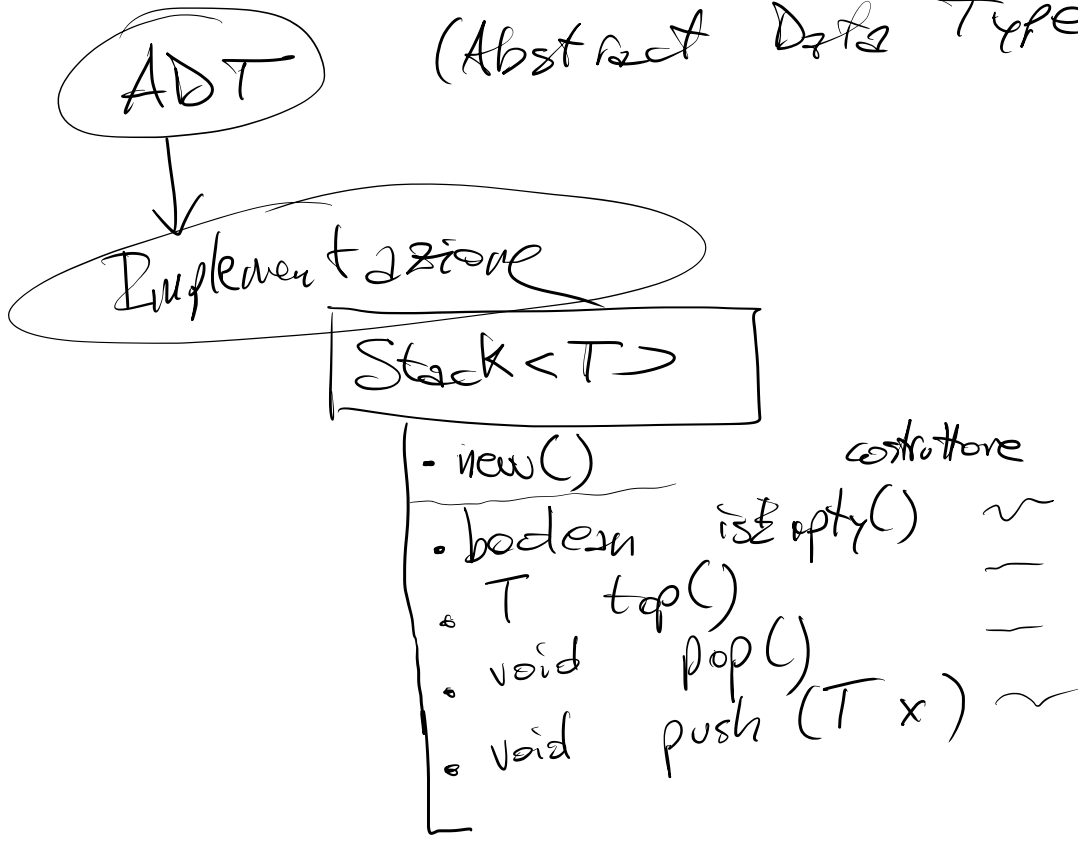 ADT (Abstract Data Type
Implementazione
Stack<T>
- new() costruttore
• boolean isEmpty()
• T top()
• void pop()
• void push (T x)